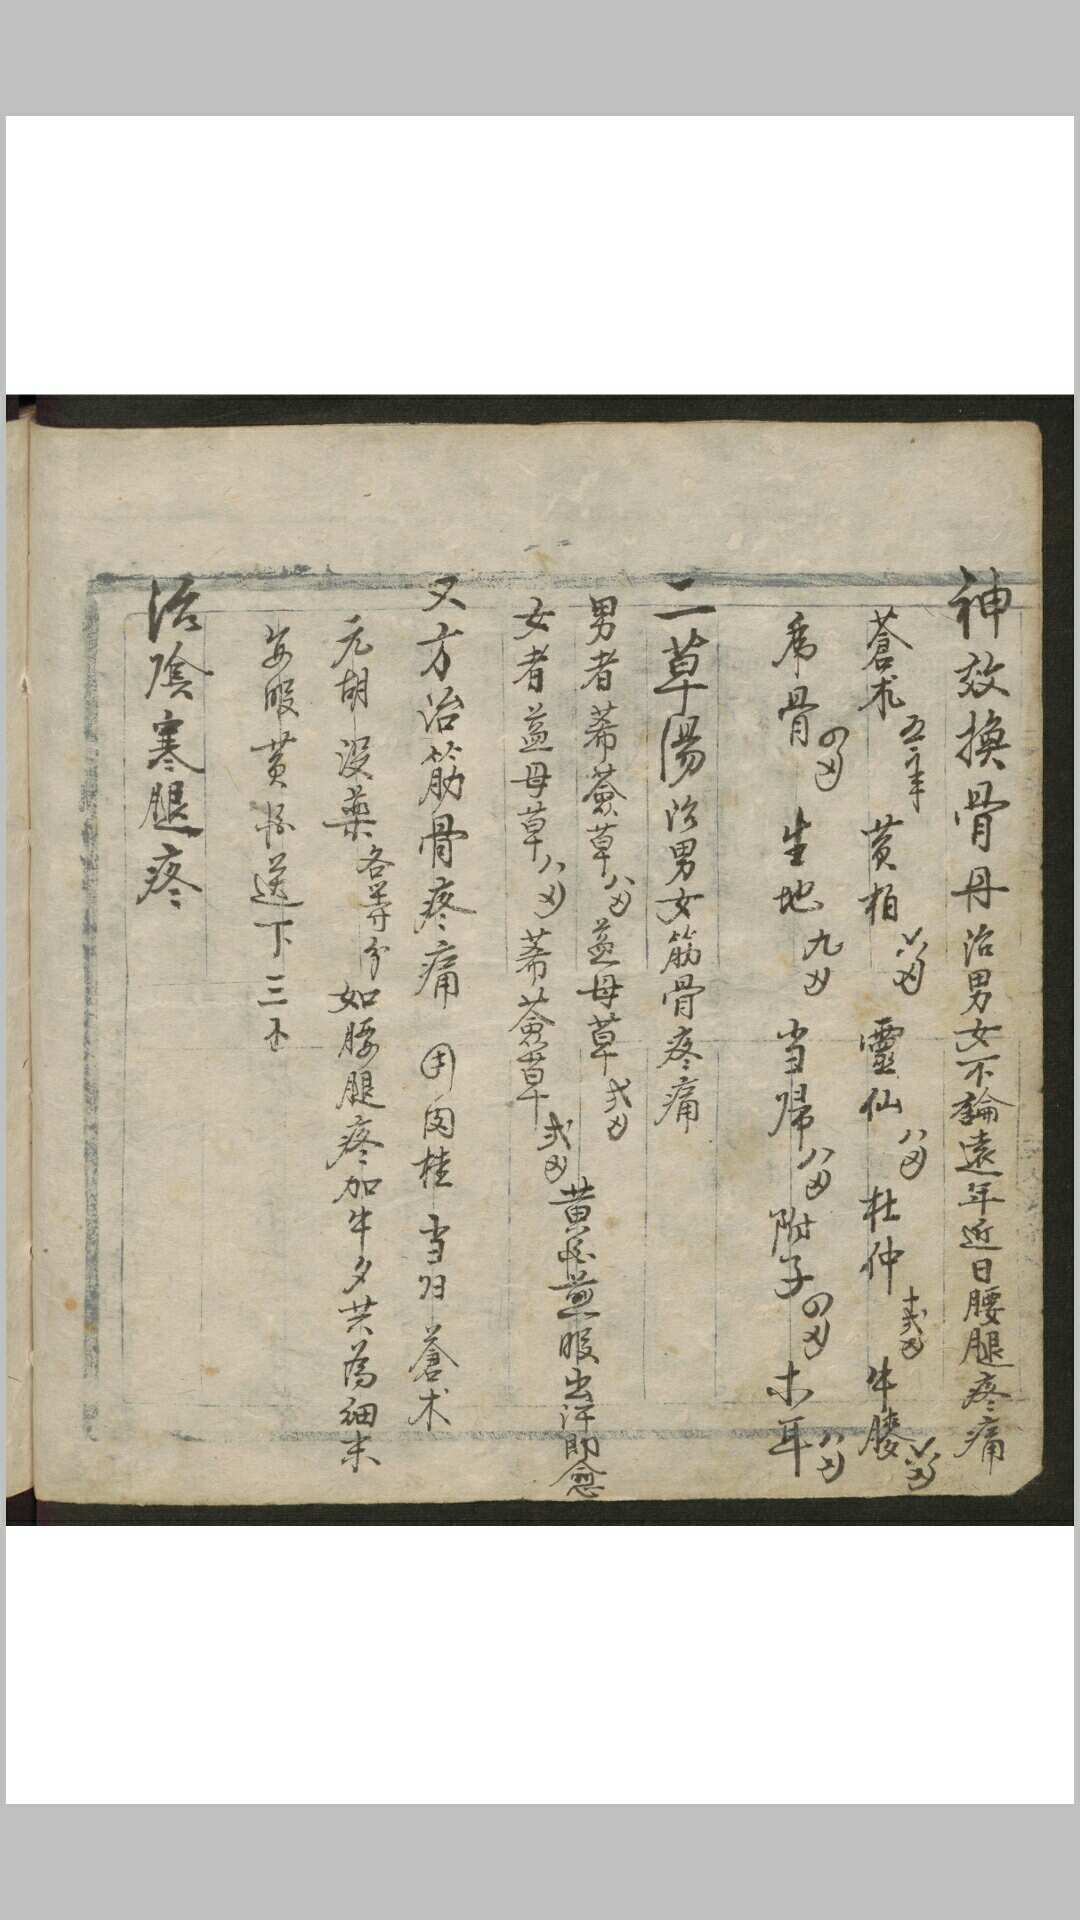 神效換骨丹治男女不論遠年近日腰腿疼痛
蒼术 黃柏 靈仙 八刄 杜仲 牛膝
骨 四刄 生地 九刄 当帰 八刄 附子 四刄 木耳 八刄
二草湯治男女筋骨疼痛
男者蓄薟草八刄益母草弍刄
女者益母草八刄蓄薟草弍刄 黄酒煎服出汗即愈
又方治筋骨疼痛 用肉桂 当归 蒼术
元胡没藥各等分如腰腿疼加牛夕共為細末
每服黃酒送下三卜
治陰寒腿疼